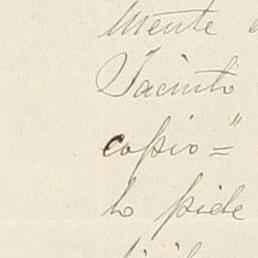 mente
Jacinto
copio="
lo pide